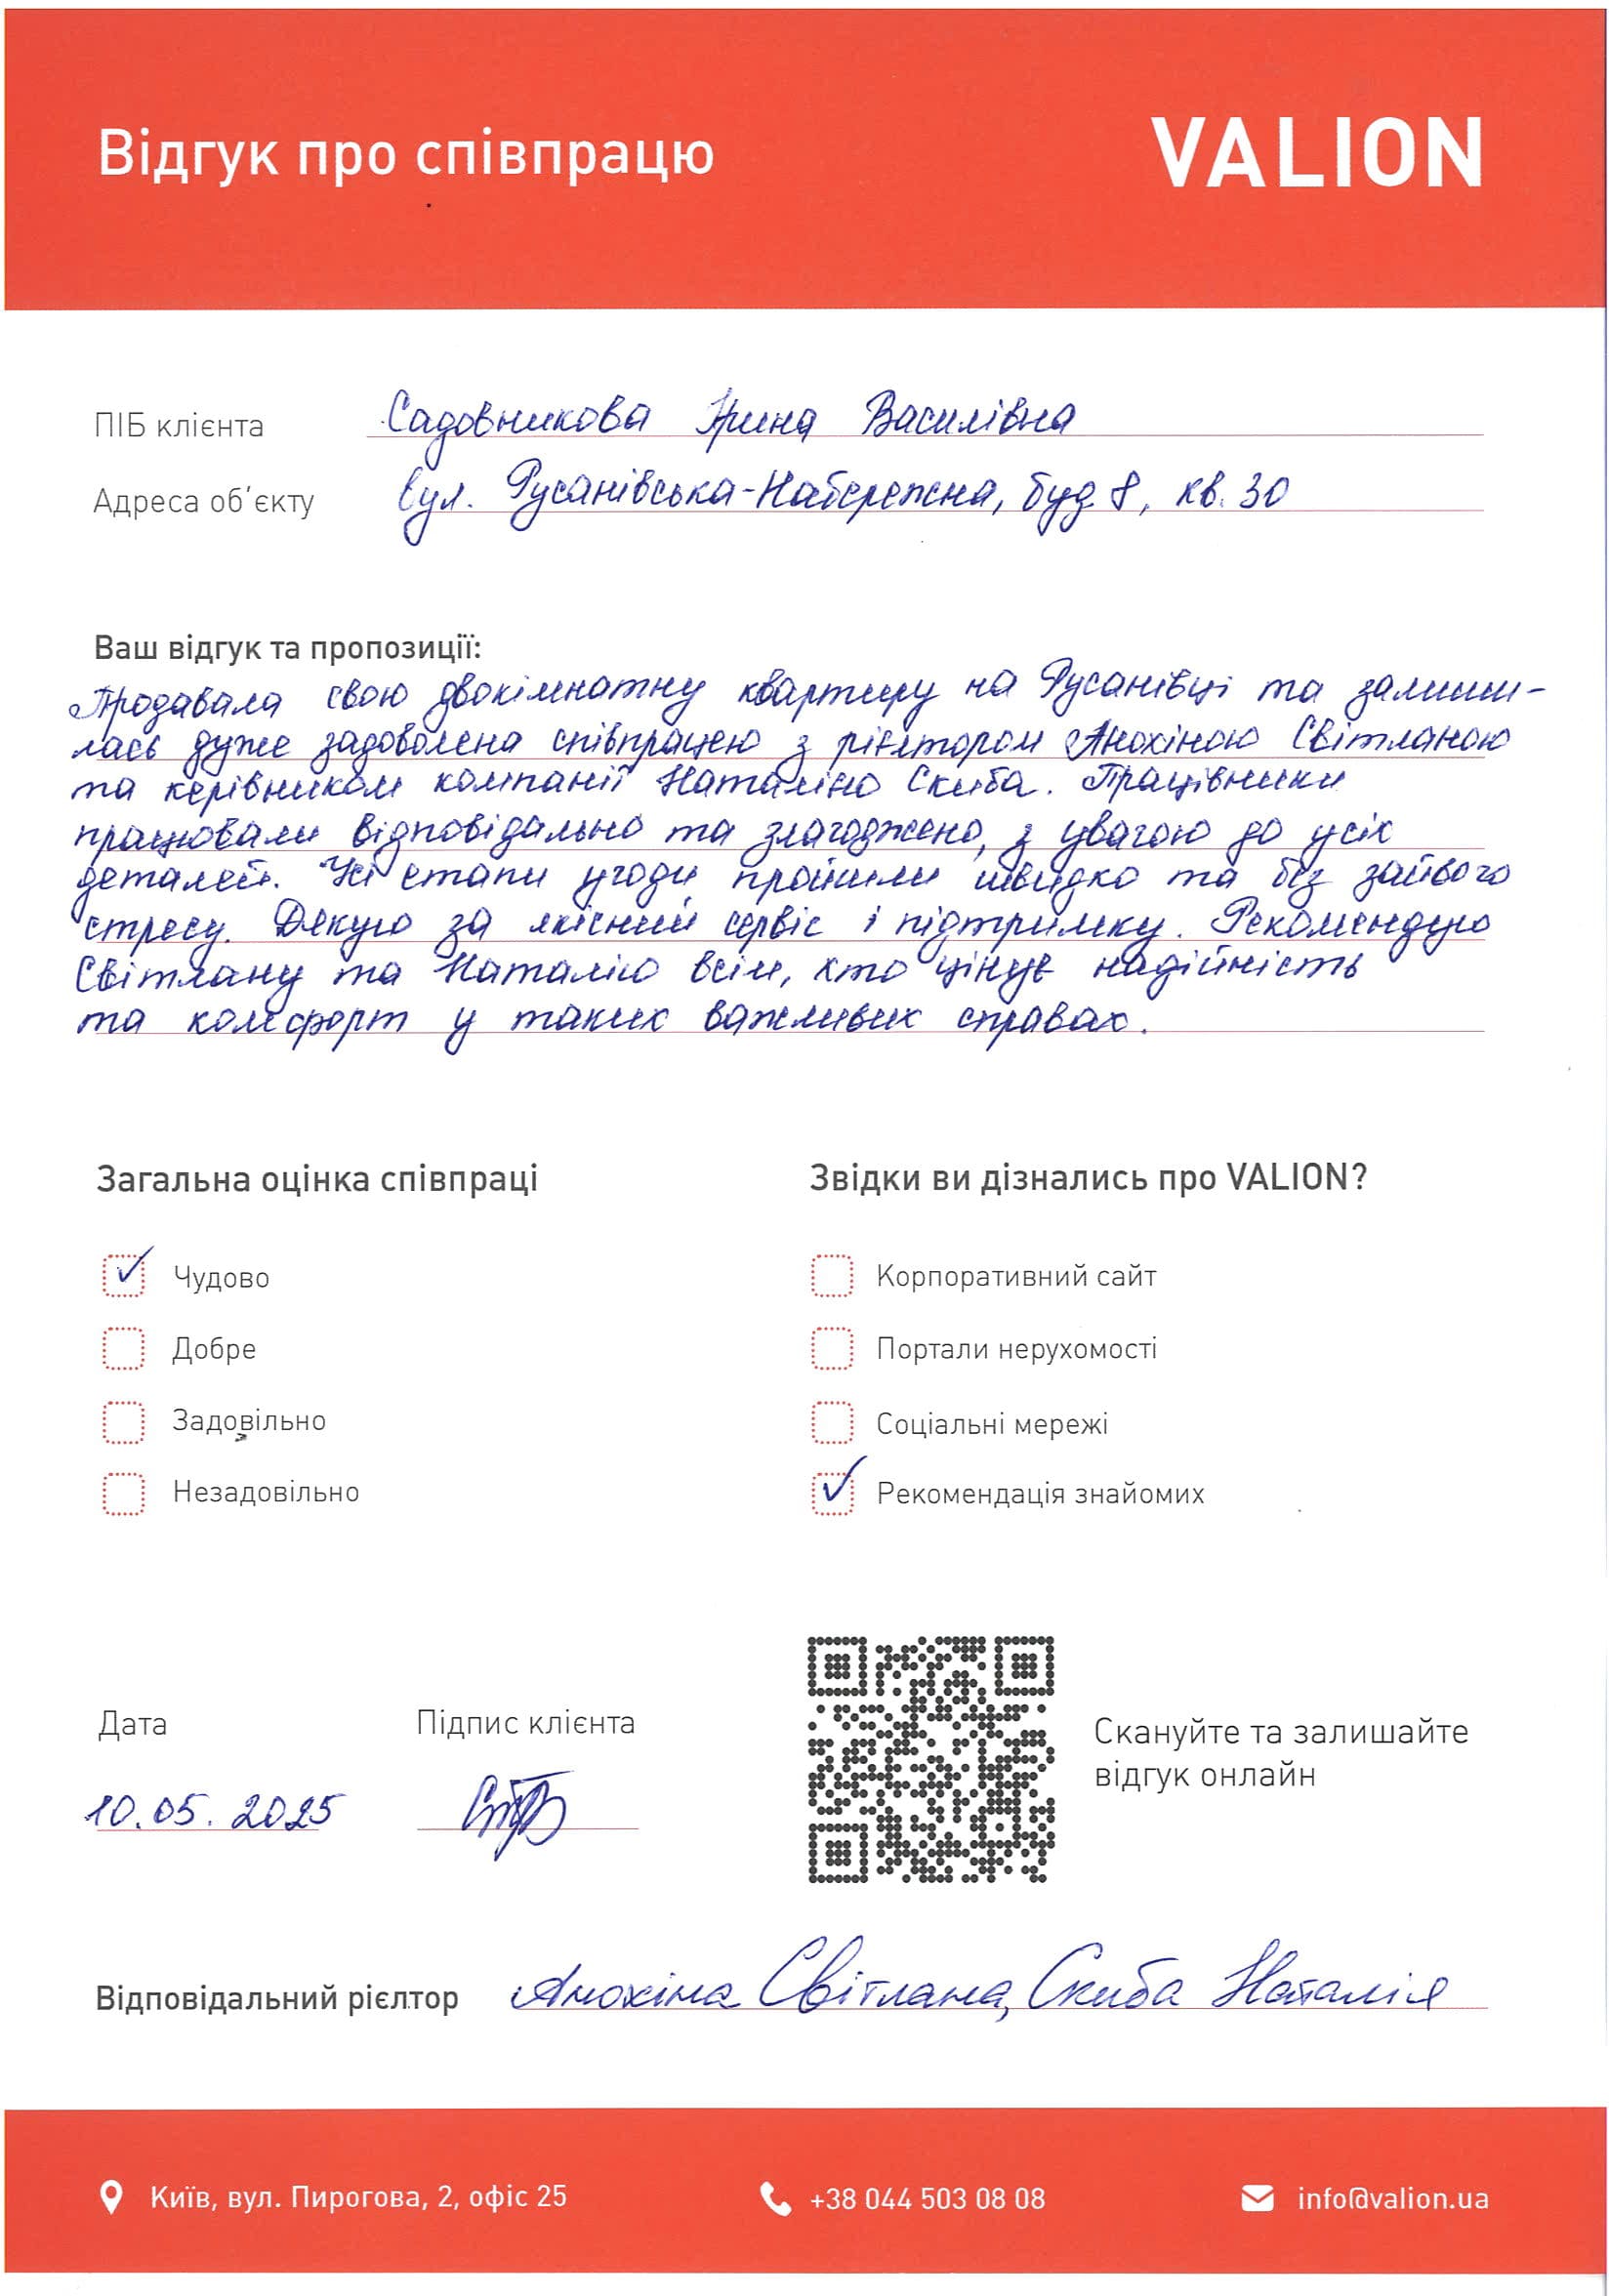 Відгук про співпрацю
VALION
ПІБ клієнта Садовникова Ірина Василівна
Адреса об'єкту вул. Русанівська-Набережна, буд 8, кв. 30
Ваш відгук та пропозиції:
Продавала свою двокімнатну квартиру на Русанівці та залиши-
лась дуже задоволена співпрацею з рієлтором Анохіною Світланою
та керівником компанії Наталією Скиба. Працівники
працювали відповідально та злагоджено, з увагою до усіх
деталей. Усі етапи угоди пройшли швидко та без зайвого
стресу. Дякую за якісний сервіс і підтримку. Рекомендую
Світлану та Наталію всім, хто цінує надійність
та комфорт у таких важливих справах.
Загальна оцінка співпраці
Чудово
Добре
Задовільно
Незадовільно
Звідки ви дізнались про VALION?
Корпоративний сайт
Портали нерухомості
Соціальні мережі
Рекомендація знайомих
Дата
10.05.2025
Підпис клієнта
Скануйте та залишайте
відгук онлайн
Відповідальний рієлтор Анохіна Світлана, Скиба Наталія
Київ, вул. Пирогова, 2, офіс 25
+38 044 503 08 08
info@valion.ua